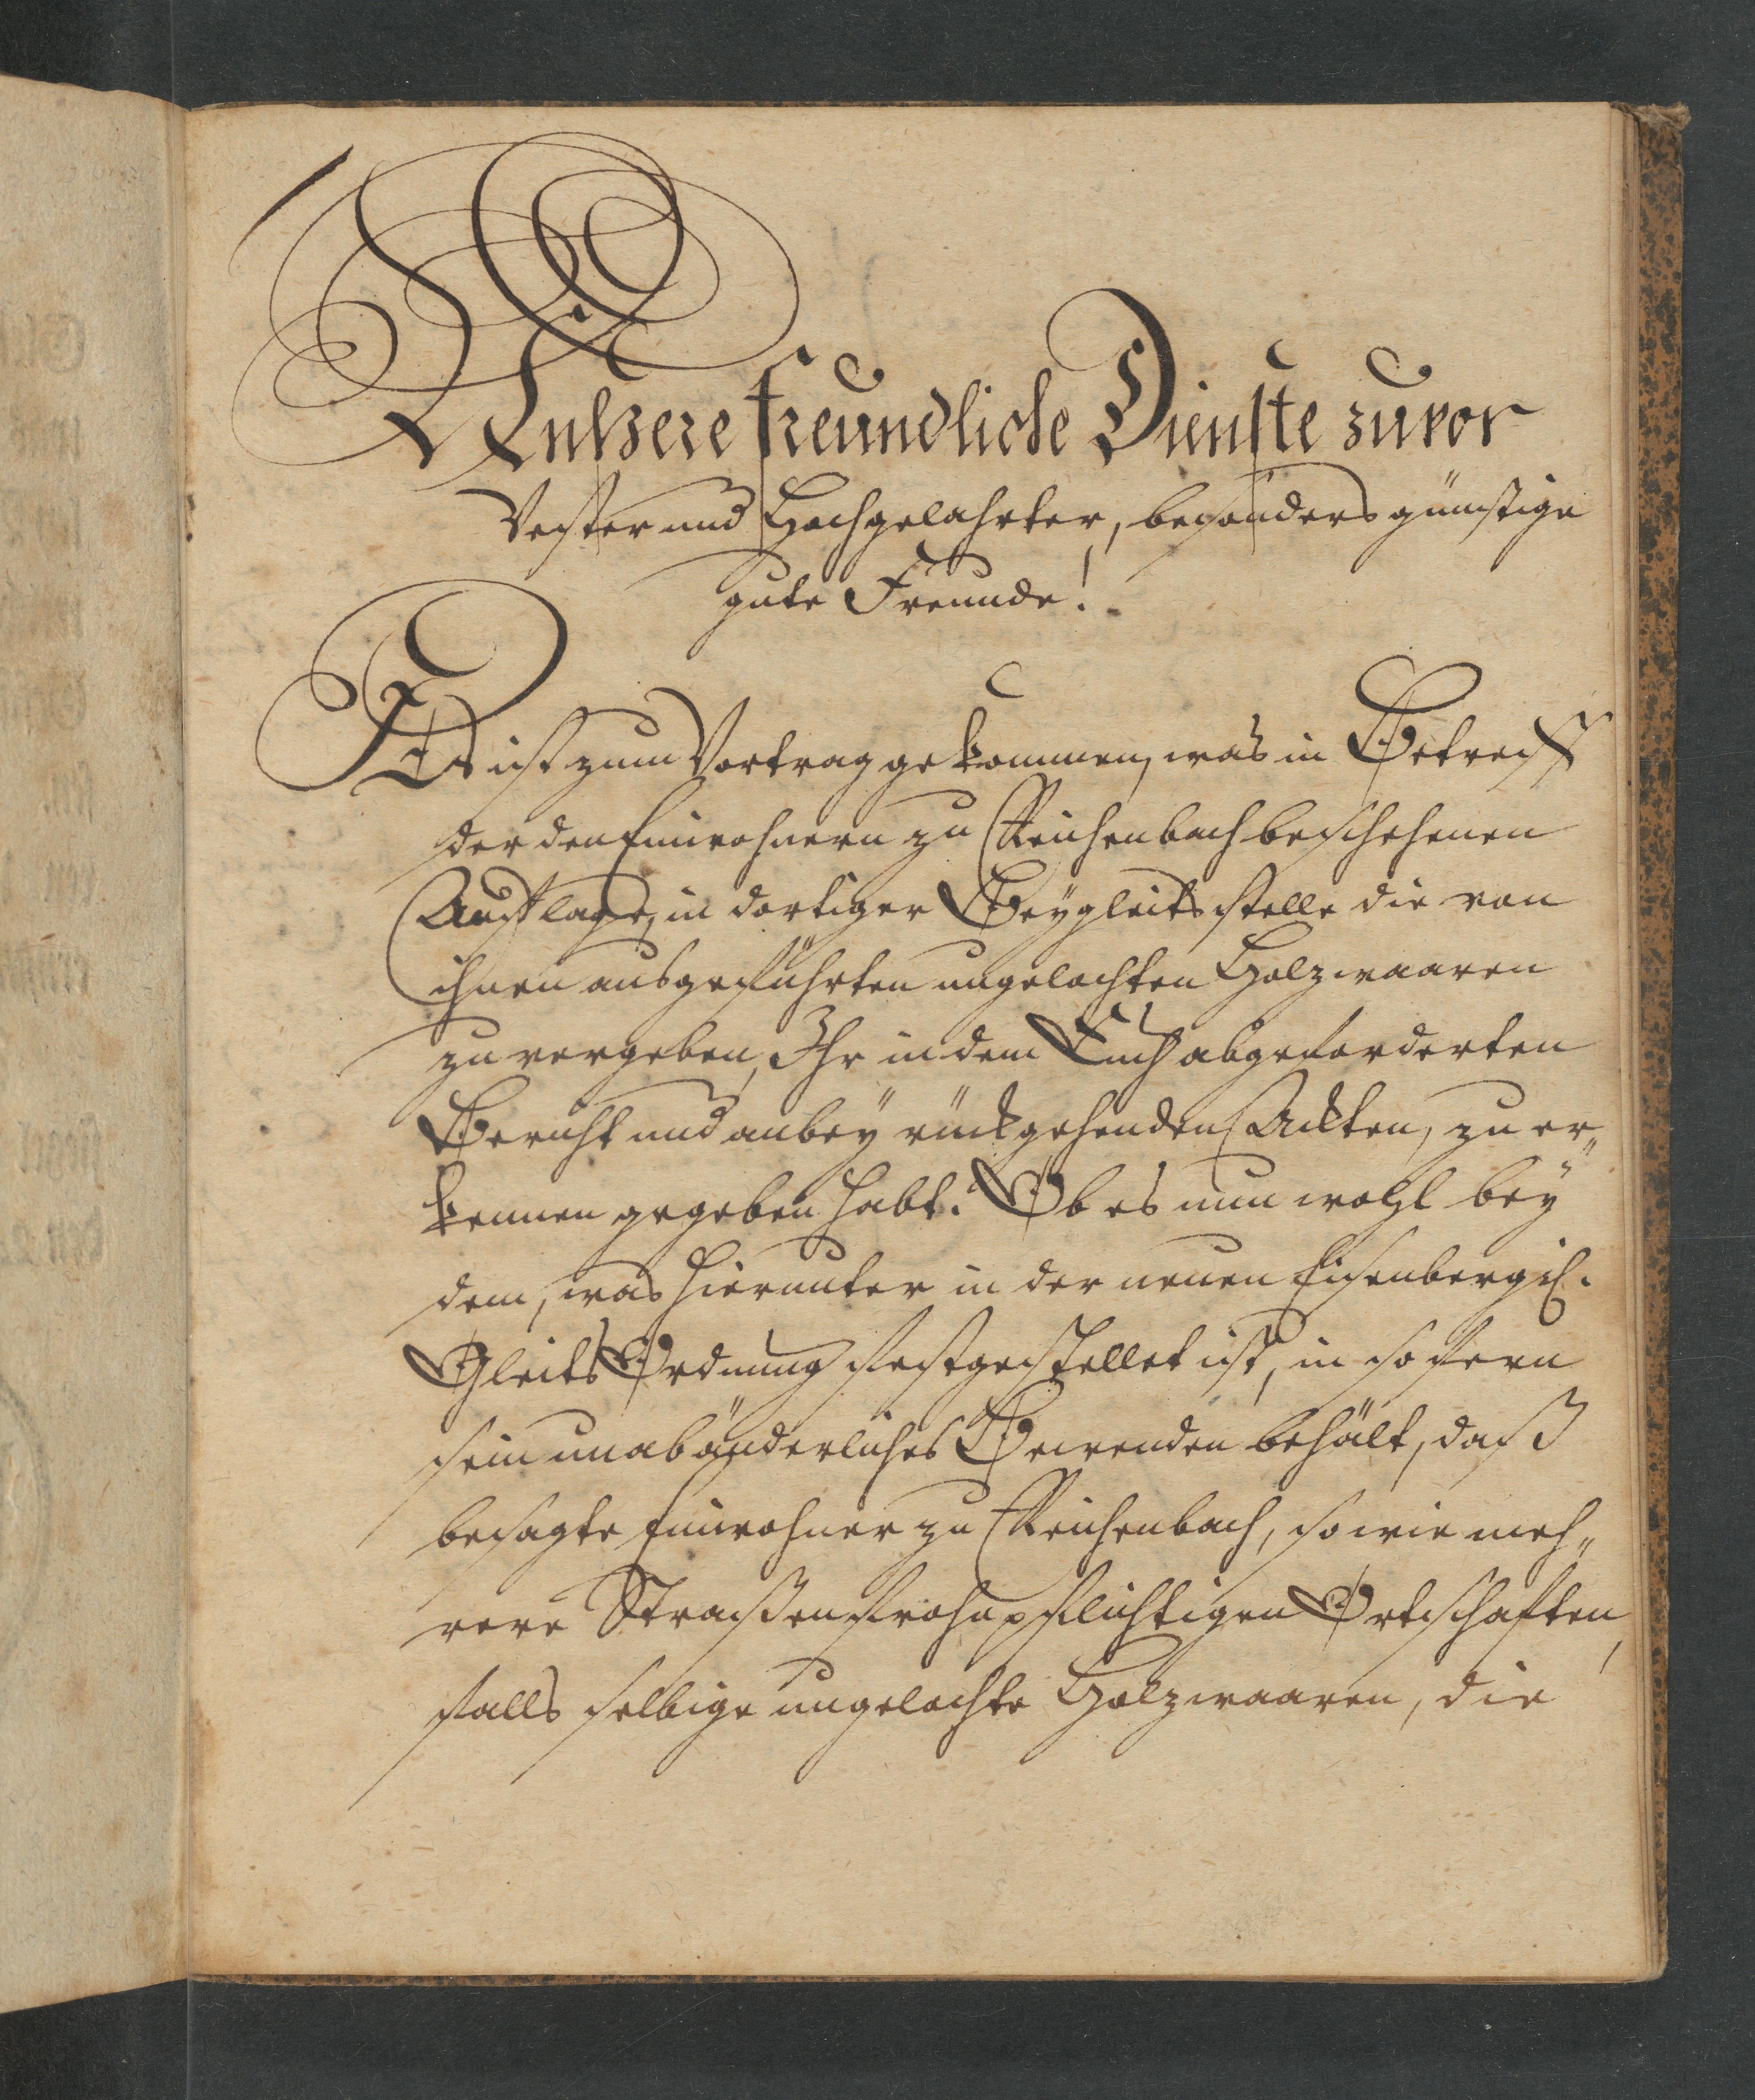 Unsere freundliche Dienste zuvor
Vester und Hochgelahrter, besonders günstige
gute Freunde!
Es ist zum Vortrag gekommen, was in Betreff
der den Einwohnern zu Reichenbach beschehenen
Auflage, in dortiger Beygleitsstelle die von
ihnen ausgeführten ungelochten Holzwaaren
zu vergeben, Ihr in dem Euch abgeforderten
Bericht und anbey rückgehenden Ackten, zu er„
kennen gegeben habt. Ob es nun wohl bey
dem, was hierunter in der neuen Eisenbergis.
Gleits Ordnung festgestellet ist, in so fern
sein unabänderliches Bewenden behält, daß
besagte Einwohner zu Reichenbach, so wie meh„
rere Straßenfrohnpflichtigen Ortschaften,
falls selbige ungelochte Holzwaaren, die